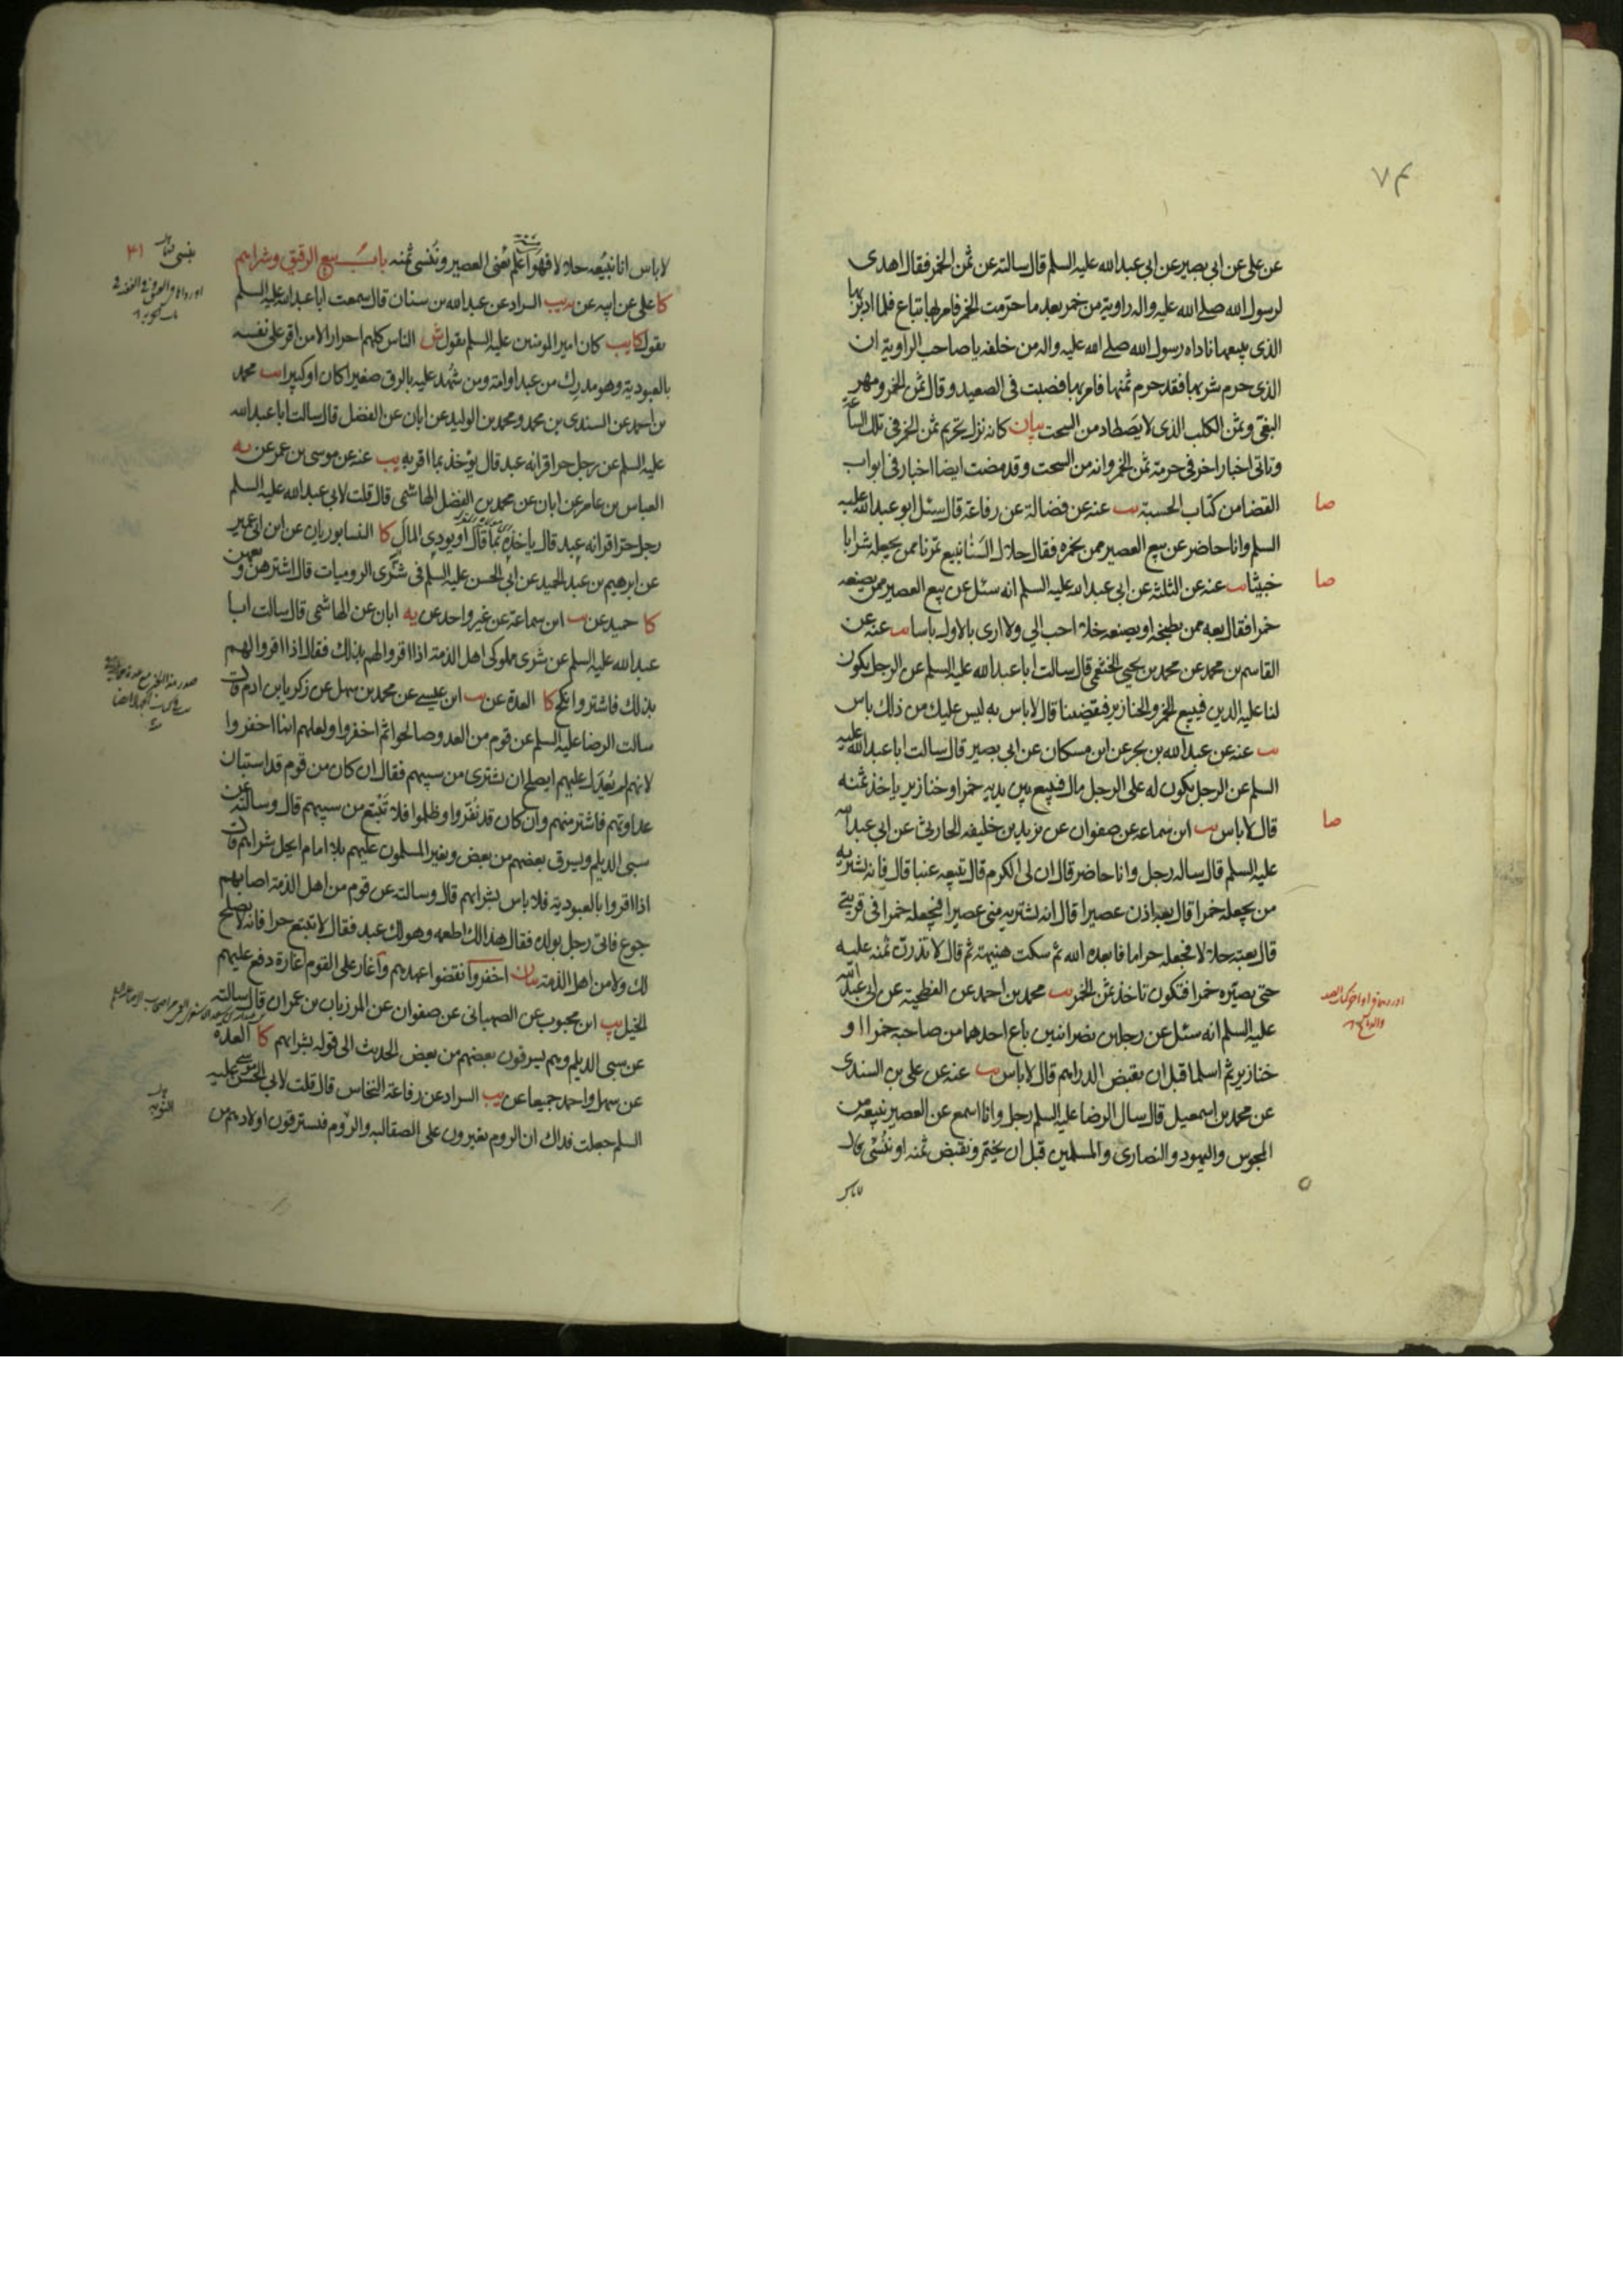 ٧٤
عن على عن ابى بصير عن ابى عبد الله عليه السلم قال سالته عن ثمن الخمر فقال اهدى
لرسول الله صلى الله عليه واله راوية من خمر بعد ما حرمت الخمر فامر بها تباع فلما ادبر بها
الذى يبيعها ناداه رسول الله صلى الله عليه واله من خلفه يا صاحب الراوية ان
الذى حرم شربها فقد حرم ثمنها فامر بها فصبت فى الصعيد و قال ثمن الخمر و مهر
البغى و ثمن الكلب الذى لا يصطاد من السحت بيان كانه نزل تحريم ثمن الخمر فى تلك الساعة
و تاتى اخبار اخر فى حرمة ثمن الخمر و انه من السحت و قد مضت ايضا اخبار فى ابواب
القضا من كتاب الحسبة يب عنه عن فضالة عن رفاعة قال سئل ابو عبد الله عليه
السلم و انا حاضر عن بيع العصير ممن يخمره فقال حلال السنا نبيع تمرنا ممن يجعله شرابا
خبيثا يب عنه عن الثلثة عن ابى عبد الله عليه السلم انه سئل عن بيع العصير ممن يصنعه
خمرا فقال بعه ممن يطبخه او يصنعه خلا احب الي و لا ارى بالاول باسا يب عنه عن
القاسم بن محمد عن محمد بن يحيى الخثعمى قال سالت ابا عبد الله عليه السلم عن الرجل يكون
لنا عليه الدين فيبيع الخمر و الخنازير فيقضينا قال لا باس به ليس عليك من ذلك باس
يب عنه عن عبد الله بن بحر عن ابن مسكان عن ابى بصير قال سالت ابا عبد الله عليه
السلم عن الرجل يكون له على الرجل مال فيبيع بين يديه خمرا و خنازير ياخذ ثمنه
قال لا باس يب ابن سماعه عن صفوان عن يزيد بن خليفه الحارثى عن ابى عبد الله
عليه السلم قال ساله رجل و انا حاضر قال ان لى الكرم قال تبيعه عنبا قال فانه يشتريه
من يجعله خمرا قال بعه اذن عصيرا قال انه يشتريه منى عصيرا فيجعله خمرا فى قريتى
قال بعته حلالا فجعله حراما فابعده الله ثم سكت هنيهة ثم قال لا تذرن ثمنه عليه
حتى يصيره خمرا فتكون تاخذ ثمن الخمر يب محمد بن احمد عن الفطحية عن ابى عبد الله
عليه السلم انه سئل عن رجلين نصرانيين باع احدهما من صاحبه خمرا او
خنازير ثم اسلما قبل ان يقبض الدراهم قال لا باس يب عنه عن على بن السندى
عن محمد بن اسمعيل قال سال الرضا عليه السلم رجل و انا اسمع عن العصير نبيعه من
المجوس و اليهود و النصارى و المسلمين قبل ان يختمر و نقبض ثمنه او ننسى قال
لا باس
صا
صا
صا
لا باس انا نبيعه حلالا فهو اعلم يعنى العصير و ننسى ثمنه باب بيع الرقيق و شراهم
كا على عن ابيه عن يب السراد عن عبد الله بن سنان قال سمعت ابا عبد الله عليه السلم
يقول كا يب كان امير المومنين عليه السلم يقول ش الناس كلهم احرار الا من اقر على نفسه
بالعبودية و هو مدرك من عبد او امة و من شهد عليه بالرق صغيرا كان او كبيرا يب محمد
بن احمد عن السندى بن محمد و محمد بن الوليد عن ابان عن الفضل قال سالت ابا عبد الله
عليه السلم عن رجل حر اقر انه عبد قال يؤخذ بما اقر به يب عنه عن موسى بن عمر عن يه
العباس بن عامر عن ابان عن محمد بن الفضل الهاشمى قال قلت لابى عبد الله عليه السلم
رجل حر اقر انه عبد قال ياخذه بما قال او يودى المال كا النسابوريان عن ابن ابى عمير
عن ابرهيم بن عبد الحميد عن ابى الحسن عليه السلم فى شرى الروميات قال اشترهن و بعهن
كا حميد عن يب ابن سماعة عن غير واحد عن يه ابان عن الهاشمى قال سالت ابا
عبد الله عليه السلم عن شرى مملوكى اهل الذمة اذا اقروا لهم بذلك فقال اذا اقروا لهم
بذلك فاشتر و انكح كا العدة عن يب ابن عيسى عن محمد بن سهل عن زكريا بن ادم قال
سالت الرضا عليه السلم عن قوم من العدو صالحوا ثم اخفروا و لعلهم انما اخفروا
لانهم لم يعدل عليهم ايصلح ان يشترى من سبيهم فقال ان كان من قوم قد استبان
عداوتهم فاشتر منهم و ان كان قد نفروا و ظلموا فلا تبتع من سبيهم قال و سالته عن
سبى الديلم و يسرق بعضهم من بعض و يغير المسلمون عليهم بلا امام ايحل شراهم قال
اذا اقروا بالعبودية فلا باس بشراهم قال و سالته عن قوم من اهل الذمة اصابهم
جوع فاتى رجل بولده فقال هذا لك اطعمه و هو لك عبد فقال لا تبتع حرا فانه لا يصلح
لك و لا من اهل الذمة بيان اخفروا نقضوا عهدهم و اغار على القوم غارة دفع عليهم
الخيل يب ابن محبوب عن الصهبانى عن صفوان عن المرزبان بن عمران قال سالته
عن سبى الديلم و هم يسرقون بعضهم من بعض الحديث الى قوله بشراهم كا العدة
عن سهل و احمد جميعا عن يب السراد عن رفاعة النخاس قال قلت لابى الحسن موسى عليه
السلم جعلت فداك ان الروم يغيرون على الصقالبه و الروم فيسترقون اولادهم من
٣١